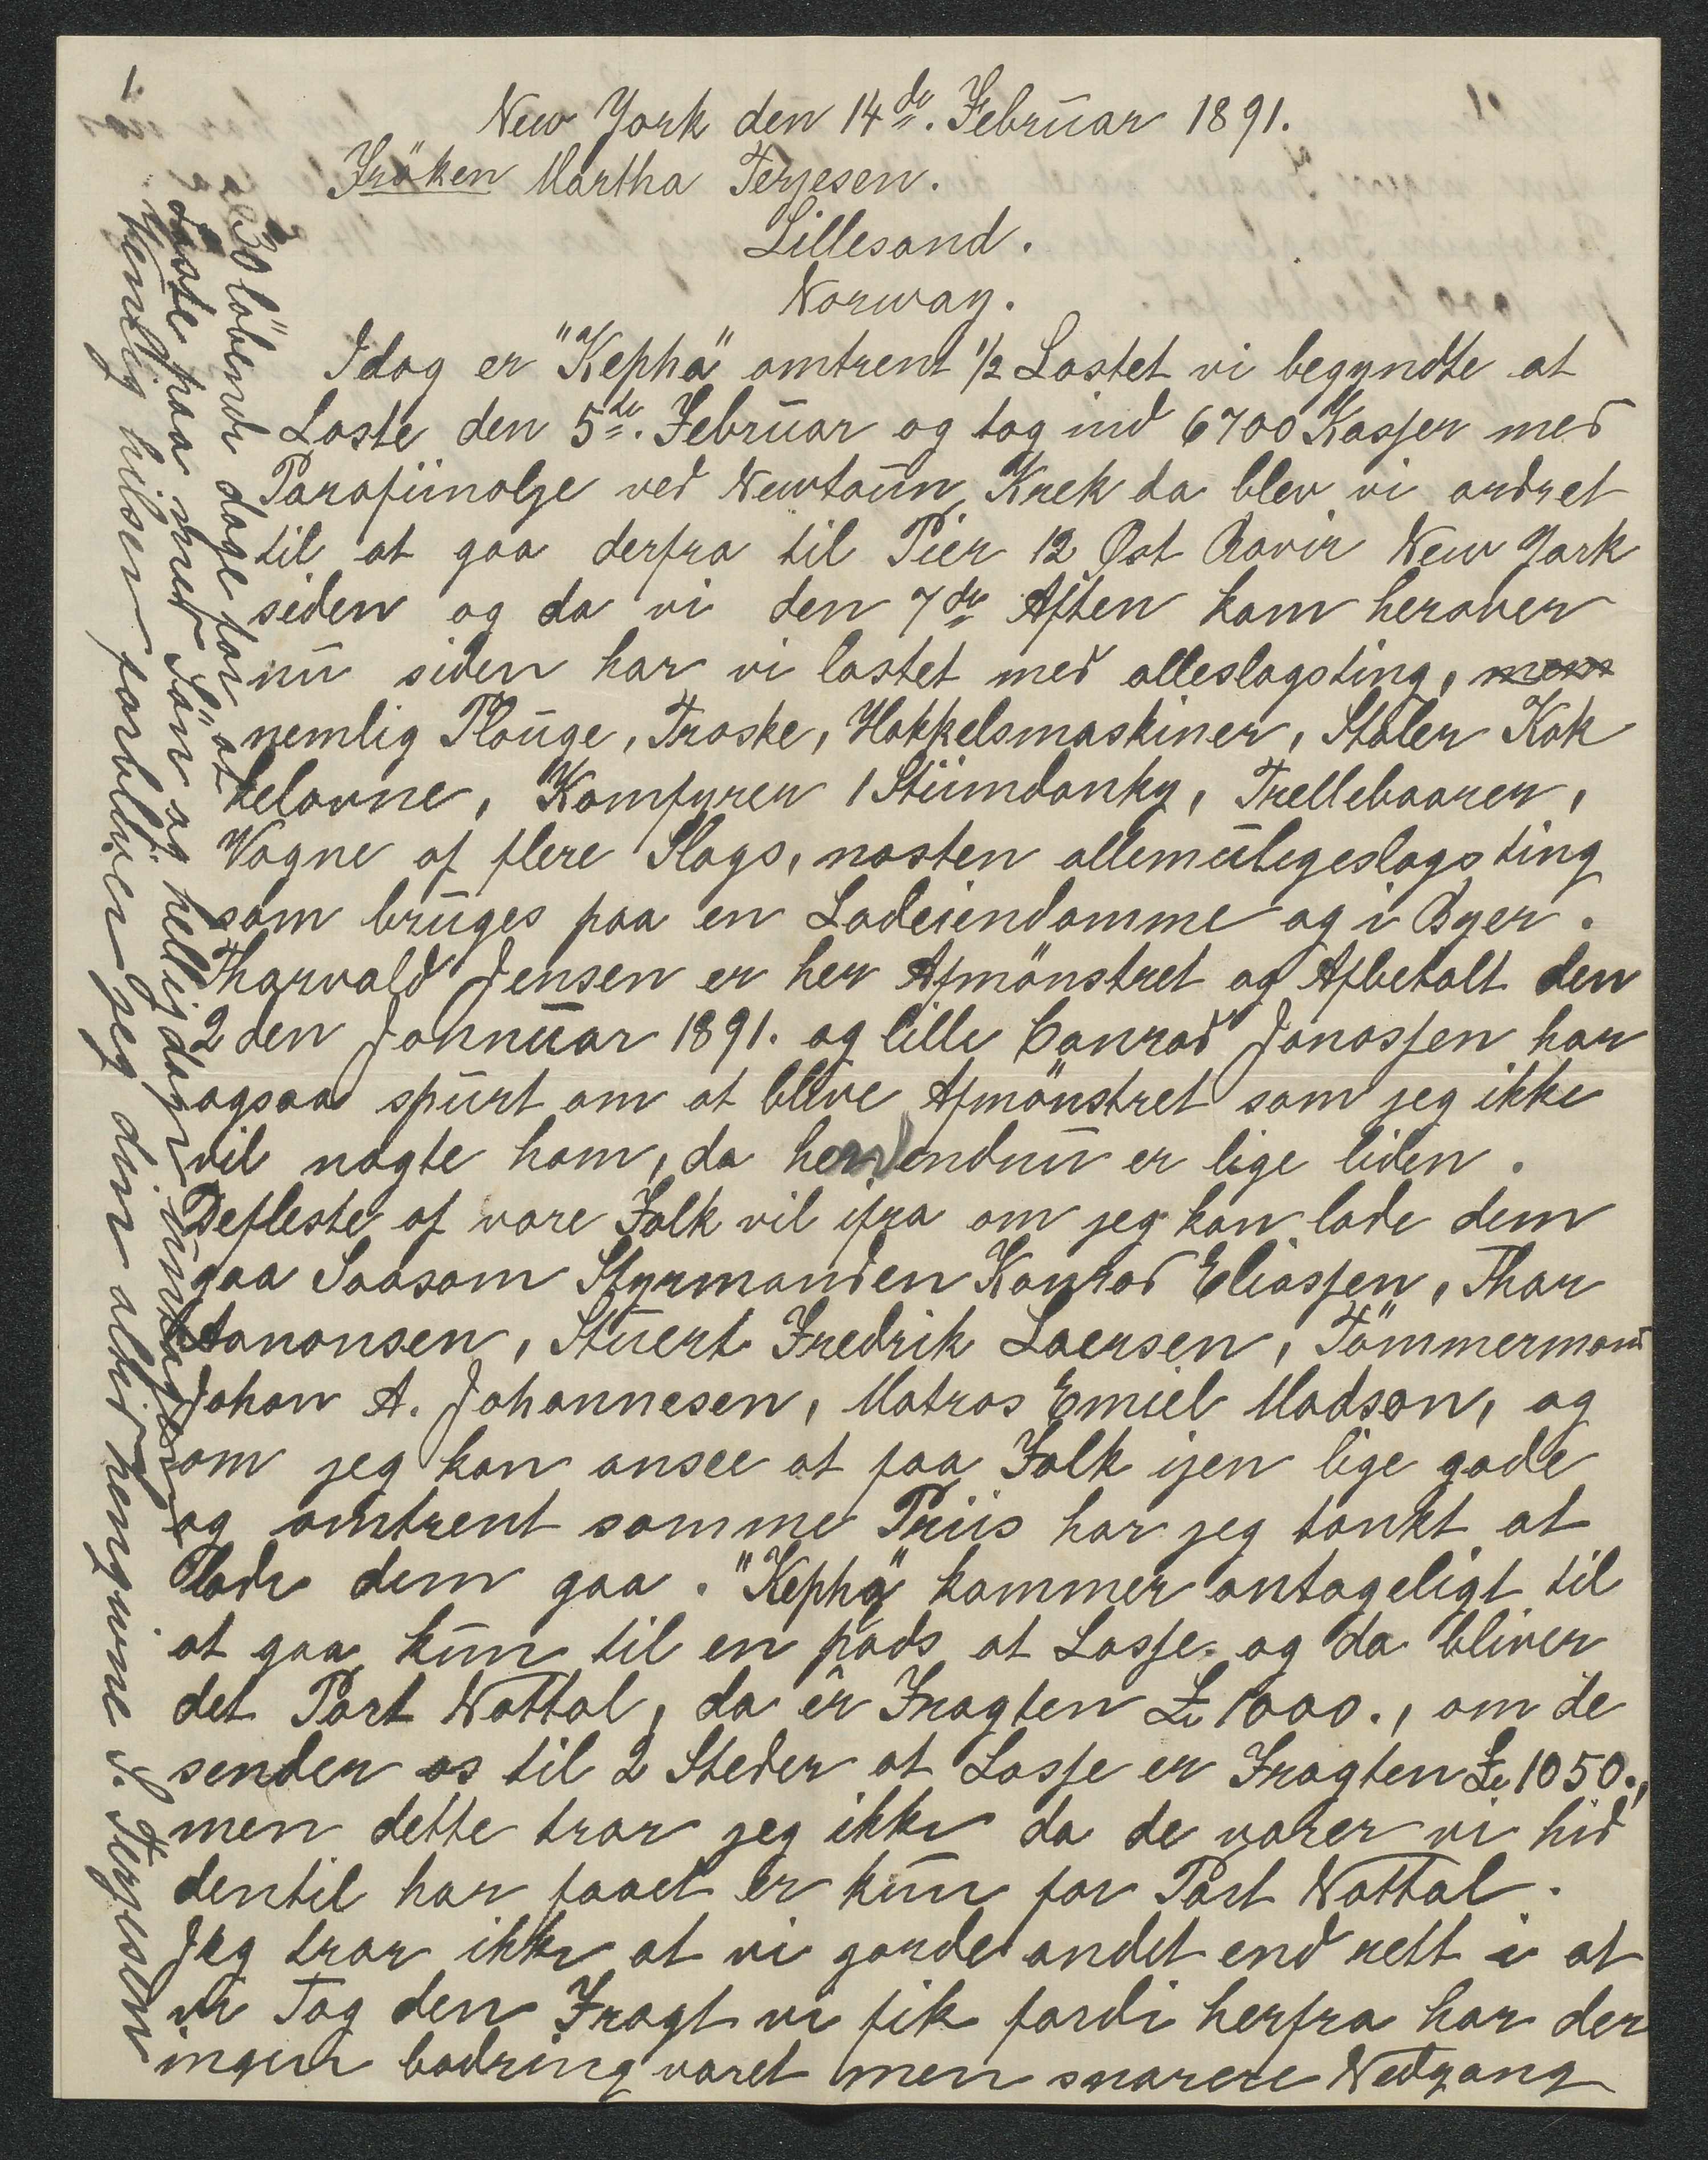 1.
New York den 14de. Februar 1891.
Fröken Martha Terjesen.
Lillesand.
Norway.
Idag er "Kepha" omtrent 1/2 Lastet vi begyndte at
Laste den 5te. Februar og tog ind 6700 Kasser med
Parafinolje ved Newtoun Krek da blev vi ordret
til at gaa derfra til Pier 12 Øst Ravir New York
siden og da vi den 7de Aften kom herover
nu siden har vi lastet med alleslagsting,
nemlig Plouge, Traske, Hakkelsmaskiner, Stoler Kak
kelovne, Komfyrer 1 Stümdanky, Trellebaarer,
Vogne af flere Slags, nasten allemuligeslags ting
som bruges paa en Ladeiendomme og i Byer.
Tharvald Jensen er her Afmönstret og Afbetalt den
2den Jannuar 1891. og lille Conrad Jonassen har
ogsaa spurt om at blive Afmönstret som jeg ikke
vil nagte ham, da han endnu er lige liden.
Defleste af vore Folk vil ifra om jeg kan lade dem
gaa Saasom Styrmanden Konrad Eliassen, Thor
Aanonsen, Stuert Fredrik Laersen, Tömmermand
Johan A. Johannesen, Matros Emiel Madsen, og
om jeg kan ansee at faa Folk ijen lige gode
og omtrent samme Priis har jeg tankt at
lade dem gaa. "Kepha" kommer antageligt til
at gaa kun til en pads at Losse. og da bliver
det Port Nattal, da er Fragten £ 1000., om de
sender os til 2 Steder at Losse er Fragten £ 1050.,
men dette tror jeg ikke da de varer vi hid
dentil har faaet er kun for Port Nattal.
Jeg tror ikke at vi gorde andet end rett i at
vi Tog den Fragt vi fik fordi herfra har der
ingen badring varet men snarere Nedgang
30 löbende dage for at
Laste paa med Sön og helligdage untagen
Venlig hilsen forbliver jeg din altid hengivne S. Terjesen